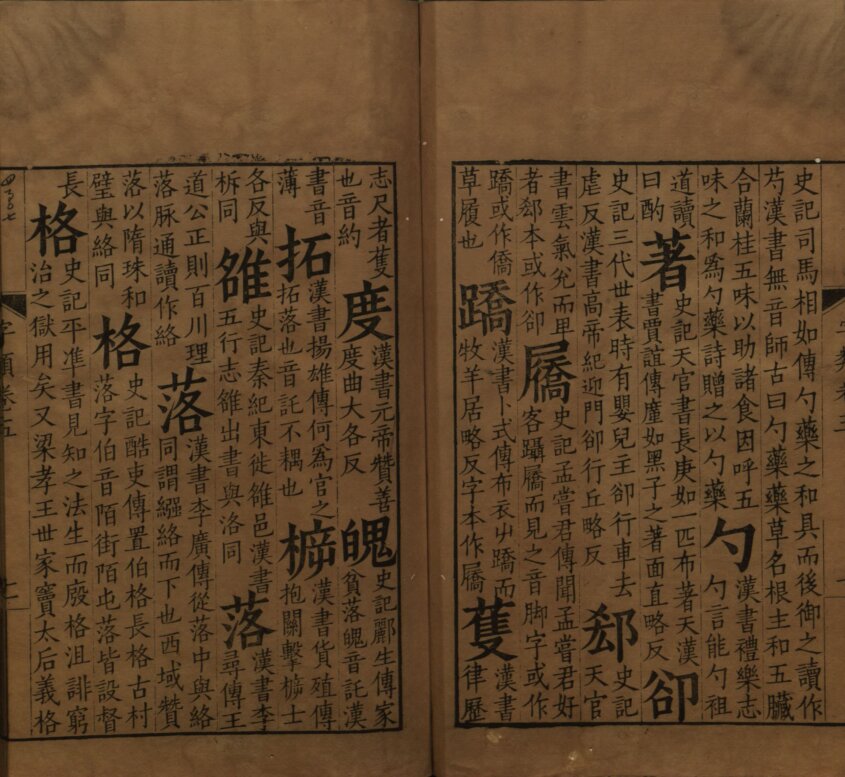 史記司馬相如傳勺藥之和具而後御之讀作
芍漢書無音師古曰勺藥藥草名根主和五臟
合蘭桂五味以助諸食因呼五
味之和爲勺藥詩贈之以勺藥
勺
漢書禮樂志
勺言能勺祖
道讀
曰酌
著
史記天官書長庚如一匹布著天漢
書賈誼傳廑如黑子之著面直略反
卻
史記三代世表時有嬰兒主卻行車去
虐反漢書高帝紀迎門卻行丘略反
郄
史記
天官
書雲氣兊而卑
者郄本或作卻
屩
史記孟嘗君傳聞孟嘗君好
客躡屩而見之音脚字或作
蹻或作僑
草履也
蹻
漢書卜式傳布衣屮蹻而
牧羊居略反字本作屩
蒦
漢書
律歷
志尺者蒦
也音約
度
漢書元帝贊善
度曲大各反
魄
史記酈生傳家
貧落魄音託漢
書音
薄
拓
漢書揚雄傳何爲官之
拓落也音託不耦也
㯓
漢書貨殖傳
抱關擊㯓士
各反與
柝同
雒
史記秦紀東徙雒邑漢書
五行志雒出書與洛同
落
漢書李
尋傳王
道公正則百川理
落脉通讀作絡
落
漢書李廣傳從落中與絡
同謂繦絡而下也西域贊
落以隋珠和
璧與絡同
格
史記酷吏傳置伯格長格古村
落字伯音陌街陌屯落皆設督
長
格
史記平准書見知之法生而廢格沮誹窮
治之獄用矣又梁孝王世家竇太后義格
字類卷五